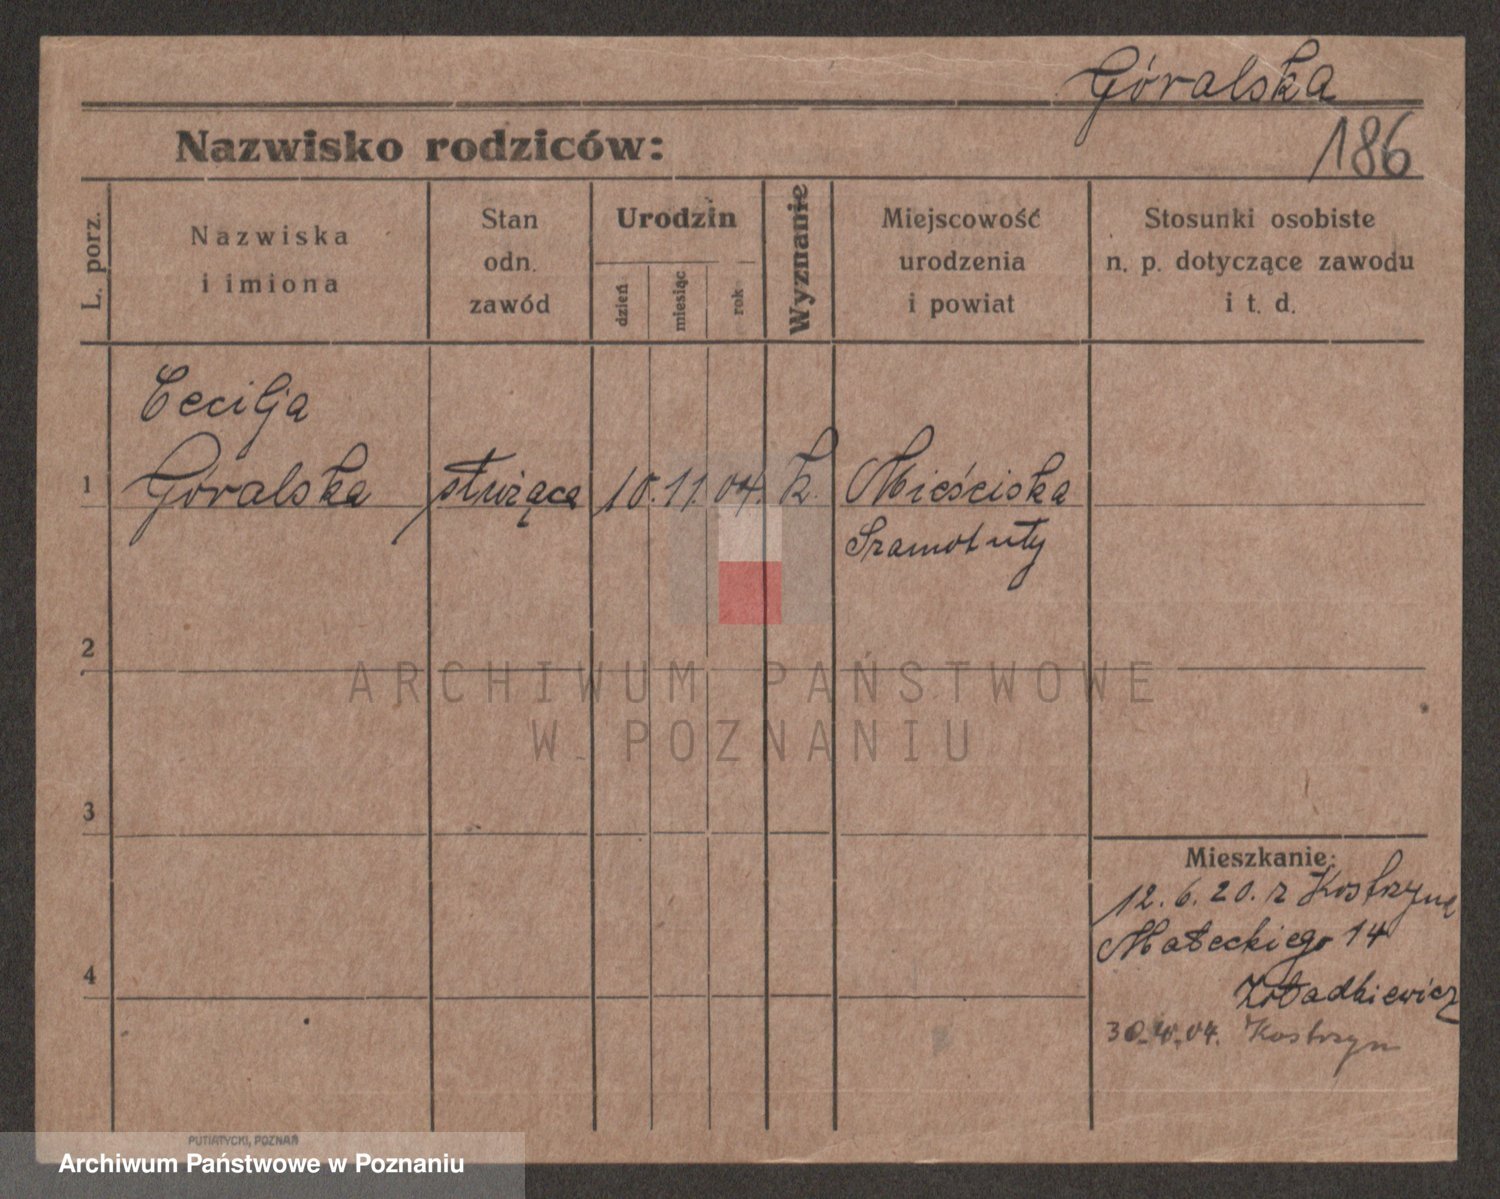 Góralska
186
Nazwisko rodziców:
L. porz.
Nazwiska
i imiona
Stan
odn.
zawód
Urodzin
dzień
miesiąc
rok
Wyznanie
Miejscowość
urodzenia
i powiat
Stosunki osobiste
n. p. dotyczące zawodu
i t. d.
Cecilja
1 Góralska służąca 10. 11. 04. k. Mieściska
Szamotuły
2
ARCHIWUM PAŃSTWOWE
W POZNANIU
3
Mieszkanie:
12. 6. 20. z Kostrzyna
Małeckiego 14
4
Kostrzyn
PUTIATYCKI, POZNAŃ
Archiwum Państwowe w Poznaniu